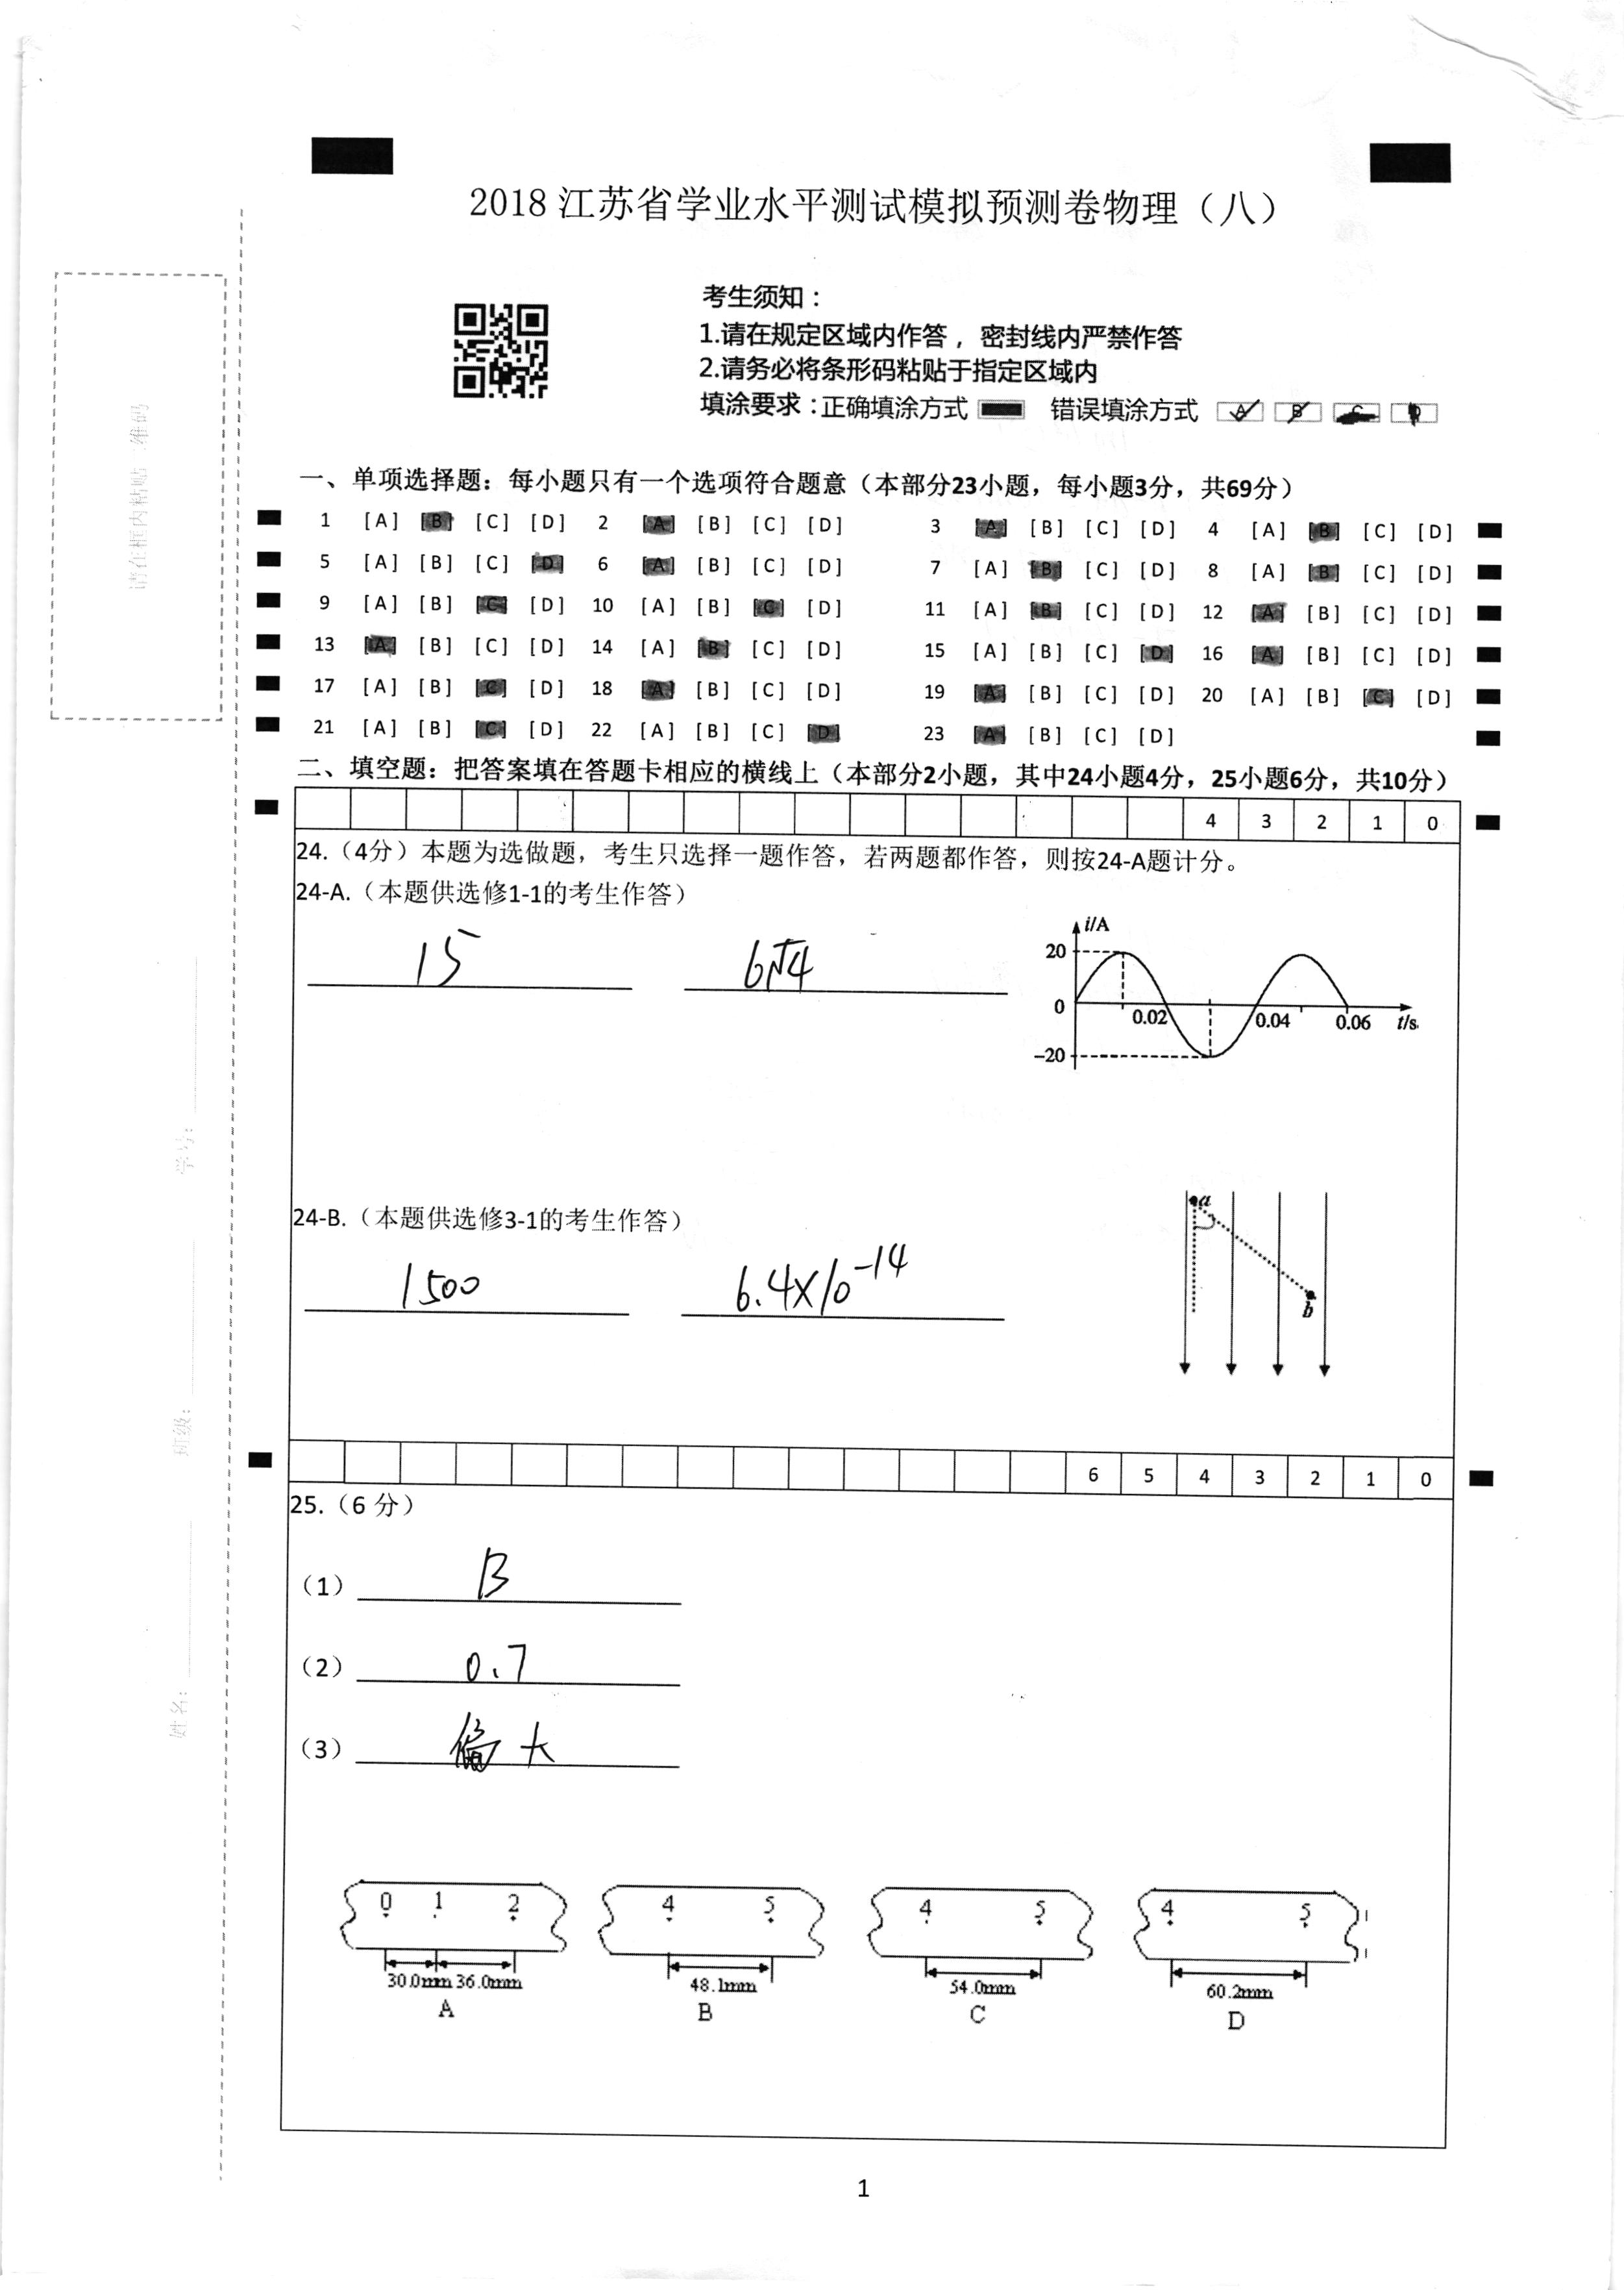 2018 江苏省学业水平测试模拟预测卷物理（八）
考生须知：
1.请在规定区域内作答，密封线内严禁作答
2.请务必将条形码粘贴于指定区域内
填涂要求：正确填涂方式 错误填涂方式 A B C D
一、单项选择题：每小题只有一个选项符合题意（本部分23小题，每小题3分，共69分）
1 [A] [B] [C] [D] 2 [A] [B] [C] [D] 3 [A] [B] [C] [D] 4 [A] [B] [C] [D]
5 [A] [B] [C] [D] 6 [A] [B] [C] [D] 7 [A] [B] [C] [D] 8 [A] [B] [C] [D]
9 [A] [B] [C] [D] 10 [A] [B] [C] [D] 11 [A] [B] [C] [D] 12 [A] [B] [C] [D]
13 [A] [B] [C] [D] 14 [A] [B] [C] [D] 15 [A] [B] [C] [D] 16 [A] [B] [C] [D]
17 [A] [B] [C] [D] 18 [A] [B] [C] [D] 19 [A] [B] [C] [D] 20 [A] [B] [C] [D]
21 [A] [B] [C] [D] 22 [A] [B] [C] [D] 23 [A] [B] [C] [D]
二、填空题：把答案填在答题卡相应的横线上（本部分2小题，其中24小题4分，25小题6分，共10分）
4 3 2 1 0
24.（4分）本题为选做题，考生只选择一题作答，若两题都作答，则按24-A题计分。
24-A.（本题供选修1-1的考生作答）
15
i/A
20
0
0.02 0.04 0.06 t/s
-20
24-B.（本题供选修3-1的考生作答）
1500 6.4×10⁻¹⁴
a
b
6 5 4 3 2 1 0
25.（6 分）
（1） B
（2） 0.7
（3） 偏大
0 1 2 4 5 4 5 4 5
30.0mm 36.0mm 48.1mm 54.0mm 60.2mm
A B C D
1
请在框内粘贴二维码
学号：
班级：
姓名：